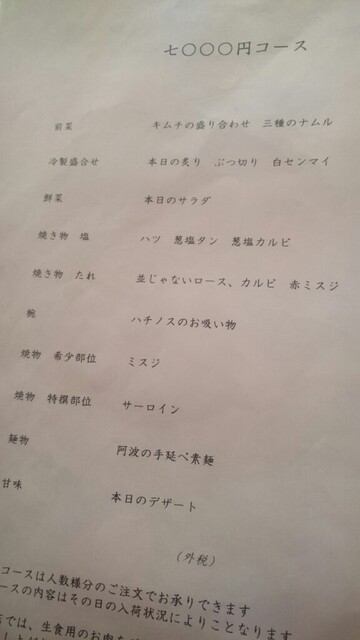 七〇〇〇円コース
前菜 キムチの盛り合わせ 三種のナムル
冷製盛合せ 本日の炙り ぶつ切り 白センマイ
鮮菜 本日のサラダ
焼き物 塩 ハツ 葱塩タン 葱塩カルビ
焼き物 たれ 並じゃないロース、カルビ 赤ミスジ
椀 ハチノスのお吸い物
焼物 希少部位 ミスジ
焼物 特撰部位 サーロイン
麺物 阿波の手延べ素麺
甘味 本日のデザート
(外税)
コースは人数様分のご注文でお承りできます
ースの内容はその日の入荷状況によりことなります
では、生食用のお肉を